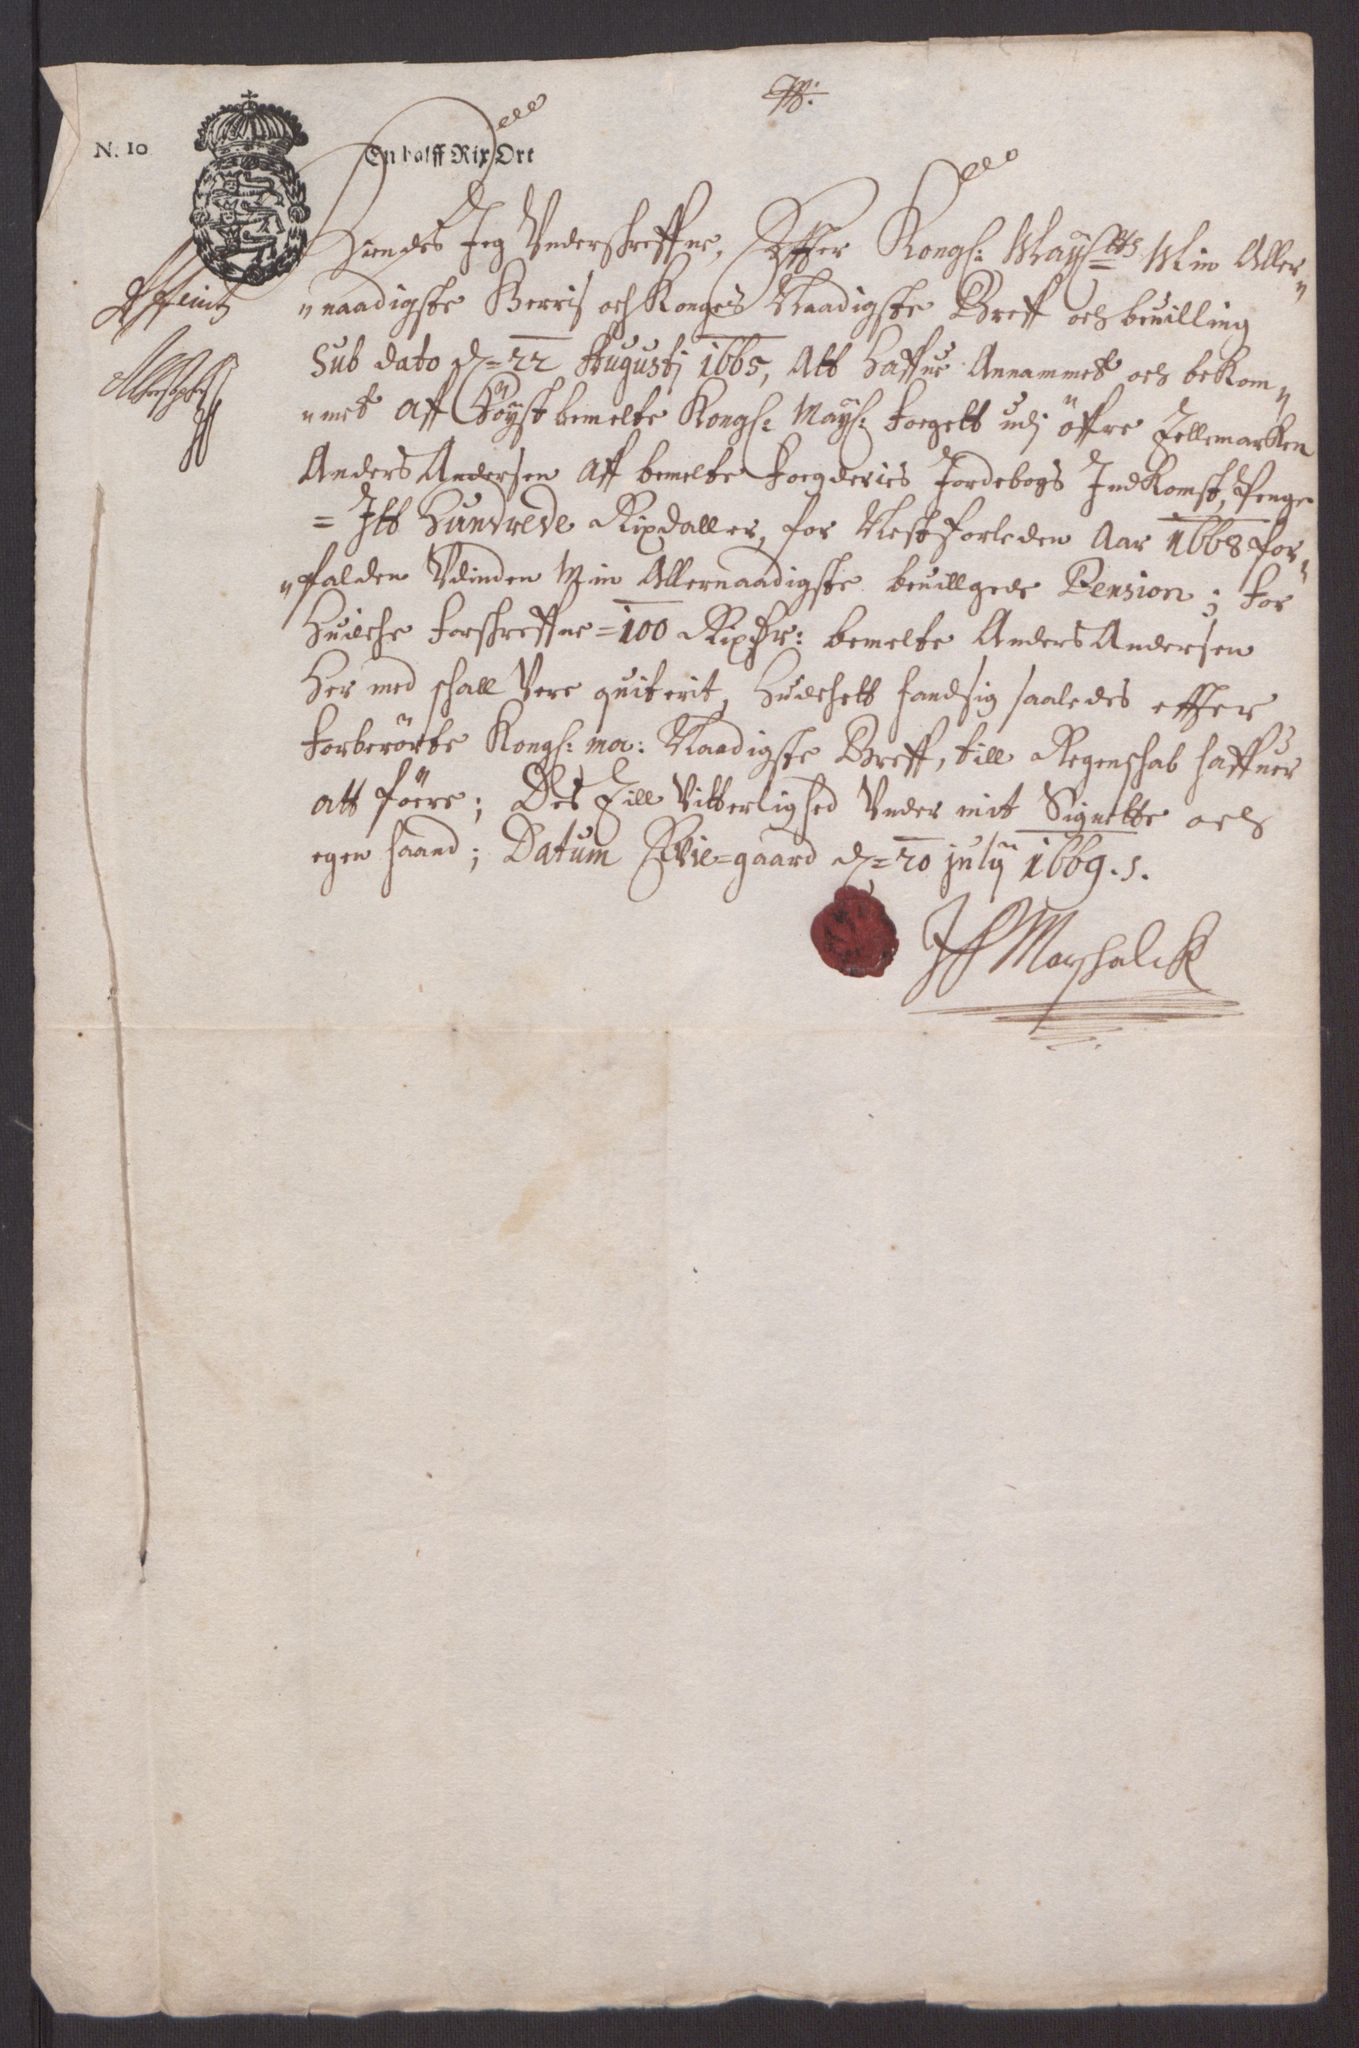 N. 10
En halff Rix Ort
Kiendes Jeg Underschreffne, Effter Kongl: Mayttz Min Aller-
naadigste Herris och Konges Naadigste Breff och beuilling
Sub dato d= 22 Augustj 1665, Att Haffue Annammet och bekom-
met Aff Höystbemelte Kongl: Mayl: Foegett udj öffre Tellemarken
Anders Andersen Aff bemelte Foegderies Jordebogs Indkomst, Penge
= Itt Hundrede Rixdaller, for Nestforleden Aar 1668 for-
falden Min Allernaadigste beuillgede Pension; For
Huilche Forschreffne = 100 Rixdr: bemelte Anders Andersen
Her med schall Vere quiterit, Huilchett hand sig saaledes effter
Forberörte Kongl: ma: Naadigste Breff, till Regenschab haffuer
att föere; Des Till Vitterlighed Under mit Signette och
egen haand; Datum gaard d= 20 july 1669.
Marschalck